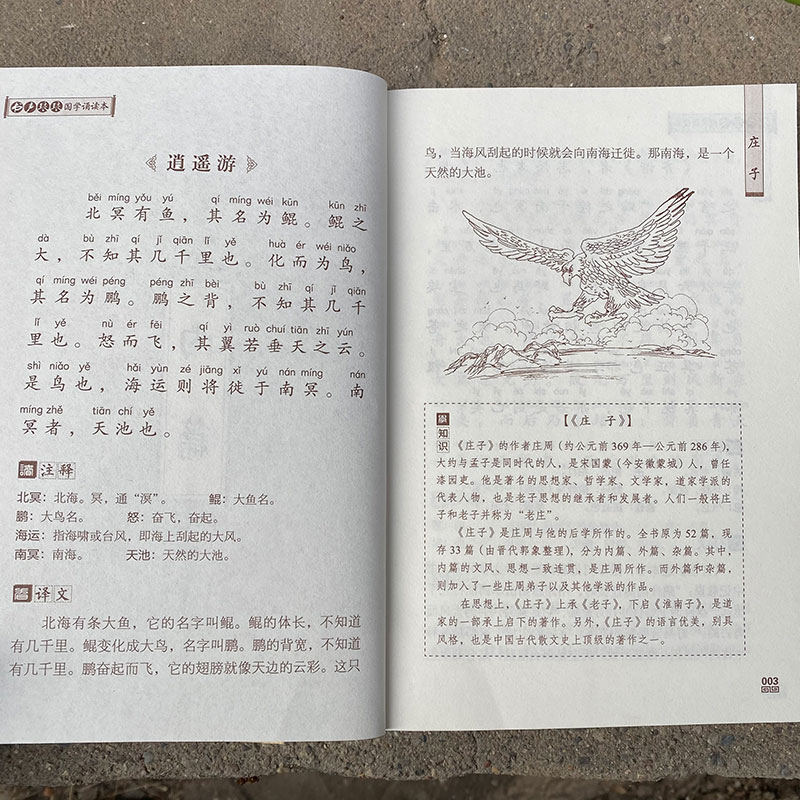 七户琅琅国学诵读本
逍遥游
běi míng yǒu yú qí míng wéi kūn kūn zhī
北冥有鱼，其名为鲲。鲲之
dà bù zhī qí jǐ qiān lǐ yě huà ér wéi niǎo
大，不知其几千里也。化而为鸟，
qí míng wéi péng péng zhī bèi bù zhī qí jǐ qiān
其名为鹏。鹏之背，不知其几千
lǐ yě nù ér fēi qí yì ruò chuí tiān zhī yún
里也。怒而飞，其翼若垂天之云。
shì niǎo yě hǎi yùn zé jiāng xǐ yú nán míng nán
是鸟也，海运则将徙于南冥。南
míng zhě tiān chí yě
冥者，天池也。
注释
北冥：北海。冥，通“溟”。 鲲：大鱼名。
鹏：大鸟名。 怒：奋飞，奋起。
海运：指海啸或台风，即海上刮起的大风。
南冥：南海。 天池：天然的大池。
译文
北海有条大鱼，它的名字叫鲲。鲲的体长，不知道
有几千里。鲲变化成大鸟，名字叫鹏。鹏的背宽，不知道
有几千里。鹏奋起而飞，它的翅膀就像天边的云彩。这只
庄子
鸟，当海风刮起的时候就会向南海迁徙。那南海，是一个
天然的大池。
知识
【《庄 子》】
《庄子》的作者庄周（约公元前369年—公元前286年），
大约与孟子是同时代的人，是宋国蒙（今安徽蒙城）人，曾任
漆园吏。他是著名的思想家、哲学家、文学家，道家学派的
代表人物，也是老子思想的继承者和发展者。人们一般将庄
子和老子并称为“老庄”。
《庄子》是庄周与他的后学所作的。全书原为52篇，现
存33篇（由晋代郭象整理），分为内篇、外篇、杂篇。其中，
内篇的文风、思想一致连贯，是庄周所作。而外篇和杂篇，
则加入了一些庄周弟子以及其他学派的作品。
在思想上，《庄子》上承《老子》，下启《淮南子》，是道
家的一部承上启下的著作。另外，《庄子》的语言优美，别具
风格，也是中国古代散文史上顶级的著作之一。
003